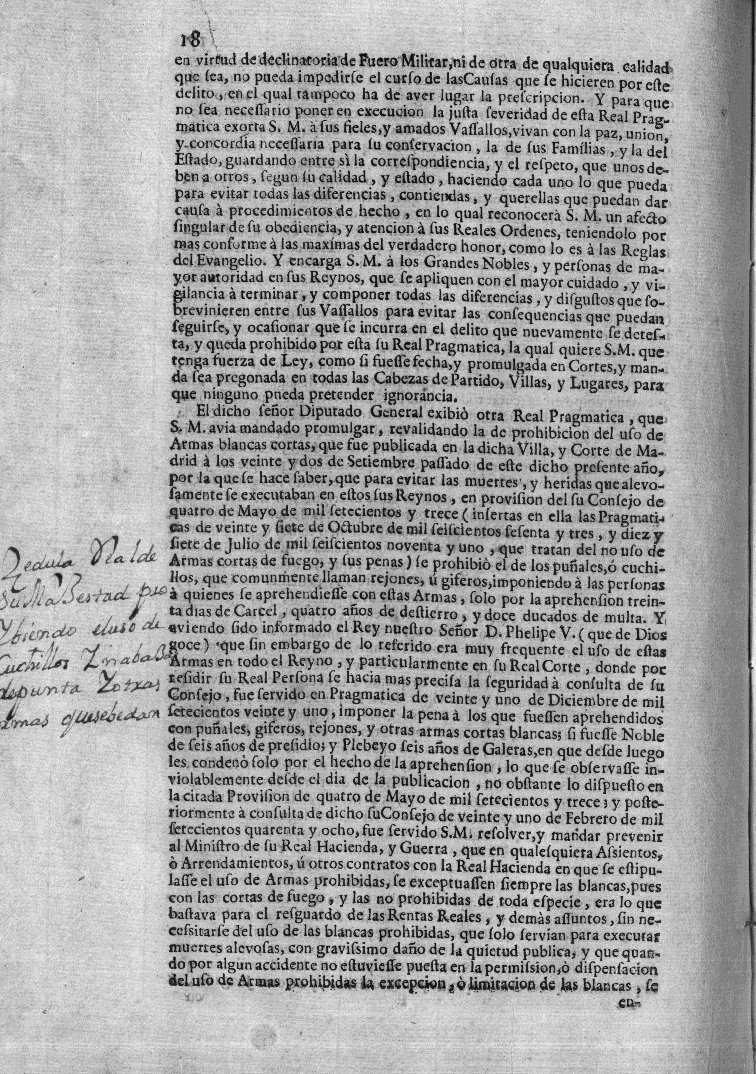 18
en virtud de declinatoria de Fuero Militar, ni de otra de qualquiera calidad
que sea, no pueda impedirse el curso de las Causas que se hicieren por este
delito, en el qual tampoco ha de aver lugar la prescripcion. Y para que
no sea necessario poner en execucion la justa severidad de esta Real Prag-
matica exorta S. M. à sus fieles, y amados Vassallos, vivan con la paz, union,
y concordia necessaria para su conservacion, la de sus Familias, y la del
Estado, guardando entre sì la correspondiencia, y el respeto, que unos de-
ben a otros, segun su calidad, y estado, haciendo cada uno lo que pueda
para evitar todas las diferencias, contiendas, y querellas que puedan dar
causa à procedimientos de hecho, en lo qual reconocerà S. M. un afecto
singular de su obediencia, y atencion à sus Reales Ordenes, teniendolo por
mas conforme à las maximas del verdadero honor, como lo es à las Reglas
del Evangelio. Y encarga S. M. à los Grandes Nobles, y personas de ma-
yor autoridad en sus Reynos, que se apliquen con el mayor cuidado, y vi-
gilancia à terminar, y componer todas las diferencias, y disgustos que so-
brevinieren entre sus Vassallos para evitar las consequencias que puedan
seguirse, y ocasionar que se incurra en el delito que nuevamente se detes-
ta, y queda prohibido por esta su Real Pragmatica, la qual quiere S.M. que
tenga fuerza de Ley, como si fuesse fecha, y promulgada en Cortes, y man-
da sea pregonada en todas las Cabezas de Partido, Villas, y Lugares, para
que ninguno pueda pretender ignorancia.
El dicho señor Diputado General exibiò otra Real Pragmatica, que
S. M. avia mandado promulgar, revalidando la de prohibicion del uso de
Armas blancas cortas, que fue publicada en la dicha Villa, y Corte de Ma-
drid à los veinte y dos de Setiembre passado de este dicho presente año,
por la que se hace saber, que para evitar las muertes, y heridas que alevo-
samente se executaban en estos sus Reynos, en provision del su Consejo de
quatro de Mayo de mil setecientos y trece (insertas en ella las Pragmati-
cas de veinte y siete de Octubre de mil seiscientos sesenta y tres, y diez y
siete de Julio de mil seiscientos noventa y uno, que tratan del no uso de
Armas cortas de fuego, y sus penas) se prohibiò el de los puñales, ò cuchi-
llos, que comunmente llaman rejones, ù giferos, imponiendo à las personas
à quienes se aprehendiesse con estas Armas, solo por la aprehension trein-
ta dias de Carcel, quatro años de destierro, y doce ducados de multa. Y
aviendo sido informado el Rey nuestro Señor D. Phelipe V. (que de Dios
goce) que sin embargo de lo referido era muy frequente el uso de estas
Armas en todo el Reyno, y particularmente en su Real Corte, donde por
residir su Real Persona se hacia mas precisa la seguridad à consulta de su
Consejo, fue servido en Pragmatica de veinte y uno de Diciembre de mil
setecientos veinte y uno, imponer la pena à los que fuessen aprehendidos
con puñales, giferos, rejones, y otras armas cortas blancas; si fuesse Noble
de seis años de presidio; y Plebeyo seis años de Galeras, en que desde luego
les condenò solo por el hecho de la aprehension, lo que se observasse in-
violablemente desde el dia de la publicacion, no obstante lo dispuesto en
la citada Provision de quatro de Mayo de mil setecientos y trece; y poste-
riormente à consulta de dicho su Consejo de veinte y uno de Febrero de mil
setecientos quarenta y ocho, fue servido S.M. resolver, y mandar prevenir
al Ministro de su Real Hacienda, y Guerra, que en qualesquiera Assientos,
ò Arrendamientos, ù otros contratos con la Real Hacienda en que se estipu-
lasse el uso de Armas prohibidas, se exceptuassen siempre las blancas, pues
con las cortas de fuego, y las no prohibidas de toda especie, era lo que
bastava para el resguardo de las Rentas Reales, y demàs assuntos, sin ne-
cessitarse del uso de las blancas prohibidas, que solo servian para executar
muertes alevosas, con gravissimo daño de la quietud publica, y que quan-
do por algun accidente no estuviesse puesta en la permission, ò dispensacion
del uso de Armas prohibidas la excepcion, ò limitacion de las blancas, se
en-
Zedula Rl de
Su MaBestad pro
Ybiendo el uso de
Cuchillos
de punta Y otras
armas que se bedan